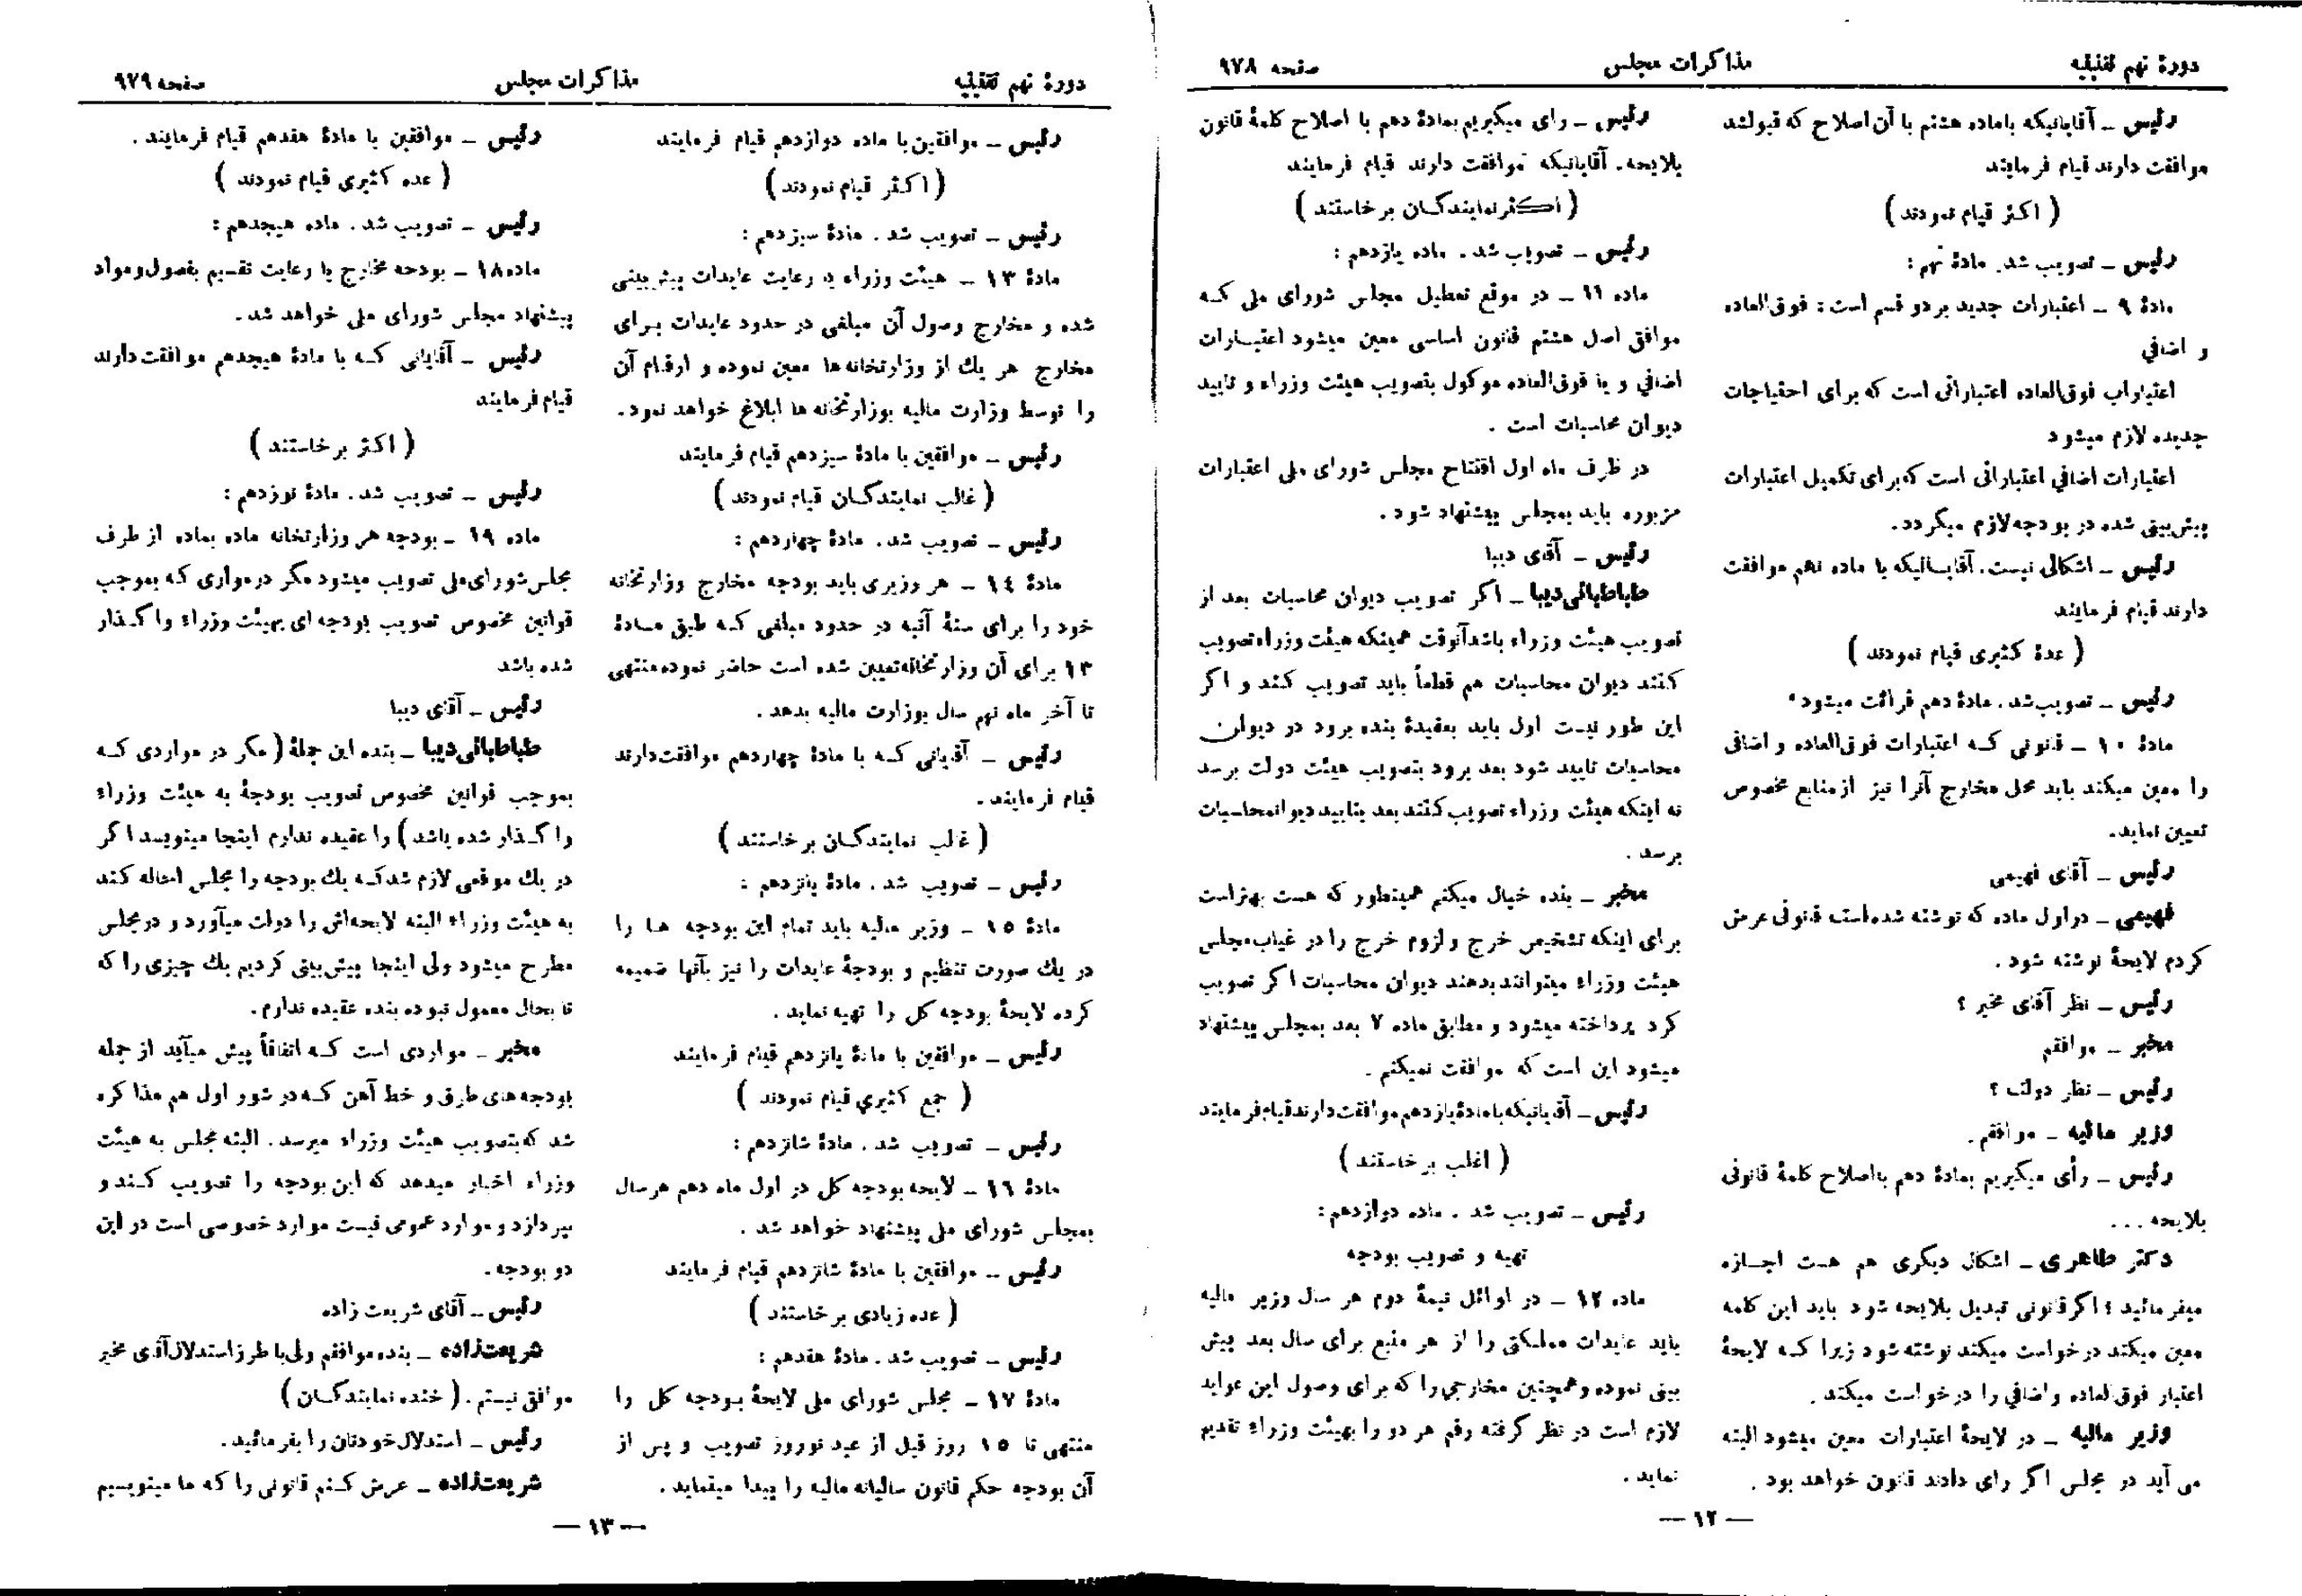 دورهٔ نهم تقنینیه مذاکرات مجلس صفحه ۹۷۸
رئیس ـ آقایانیکه باماده هشتم با آن اصلاح که قبولشد
موافقت دارند قیام فرمایند
(اکثر قیام نمودند)
رئیس ـ تصویب شد. مادهٔ نهم:
مادهٔ ۹ ـ اعتبارات جدید بر دو قسم است: فوق‌العاده
و اضافی
اعتبارات فوق‌العاده اعتباراتی است که برای احتیاجات
جدیده لازم میشود
اعتبارات اضافی اعتباراتی است که برای تکمیل اعتبارات
پیش‌بینی شده در بودجه لازم میگردد.
رئیس ـ اشکالی نیست. آقایانیکه با ماده نهم موافقت
دارند قیام فرمایند
(عدهٔ کثیری قیام نمودند)
رئیس ـ تصویب شد. مادهٔ دهم قرائت میشود.
مادهٔ ۱۰ ـ قانونی که اعتبارات فوق‌العاده و اضافی
را معین میکند باید محل مخارج آنرا نیز از منابع مخصوص
تعیین نماید.
رئیس ـ آقای فهیمی
فهیمی ـ در اول ماده که نوشته شده است قانونی عرض
کردم لایحهٔ نوشته شود.
رئیس ـ نظر آقای مخبر؟
مخبر ـ موافقم
رئیس ـ نظر دولت؟
وزیر مالیه ـ موافقم.
رئیس ـ رأی میگیریم بمادهٔ دهم بااصلاح کلمهٔ قانونی
بلایحه...
دکتر طاهری ـ اشکال دیگری هم هست اجازه
میفرمائید؛ اگر قانونی تبدیل بلایحه شود باید این کلمه
معین میکند درخواست میکند نوشته شود زیرا که لایحهٔ
اعتبار فوق‌العاده و اضافی را درخواست میکند.
وزیر مالیه ـ در لایحهٔ اعتبارات معین میشود البته
می آید در مجلس اگر رای دادند قانون خواهد بود.
رئیس ـ رای میگیریم بمادهٔ دهم با اصلاح کلمهٔ قانون
بلایحه. آقایانیکه موافقت دارند قیام فرمایند
(اکثر نمایندگان برخاستند)
رئیس ـ تصویب شد. ماده یازدهم:
ماده ۱۱ ـ در موقع تعطیل مجلس شورای ملی که
موافق اصل هشتم قانون اساسی معین میشود اعتبارات
اضافی و یا فوق‌العاده موکول بتصویب هیئت وزراء و تایید
دیوان محاسبات است.
در ظرف ماه اول افتتاح مجلس شورای ملی اعتبارات
مزبوره باید بمجلس پیشنهاد شود.
رئیس ـ آقای دیبا
طباطبائی دیبا ـ اگر تصویب دیوان محاسبات بعد از
تصویب هیئت وزراء باشد آنوقت همینکه هیئت وزراء تصویب
کنند دیوان محاسبات هم قطعاً باید تصویب کند و اگر
این طور نیست اول باید بعقیدهٔ بنده برود در دیوان
محاسبات تایید شود بعد برود بتصویب هیئت دولت برسد
نه اینکه هیئت وزراء تصویب کنند بعد بتایید دیوان‌محاسبات
برسد.
مخبر ـ بنده خیال میکنم همینطور که هست بهتر است
برای اینکه تشخیص خرج و لزوم خرج را در غیاب مجلس
هیئت وزراء میتوانند بدهند دیوان محاسبات اگر تصویب
کرد پرداخته میشود و مطابق ماده ۷ بعد بمجلس پیشنهاد
میشود این است که موافقت نمیکنم.
رئیس ـ آقایانیکه بامادهٔ یازدهم موافقت دارند قیام فرمایند
(اغلب برخاستند)
رئیس ـ تصویب شد. ماده دوازدهم:
تهیه و تصویب بودجه
ماده ۱۲ ـ در اوائل نیمهٔ دوم هر سال وزیر مالیه
باید عایدات مملکتی را از هر منبع برای سال بعد پیش
بینی نموده و همچنین مخارجی را که برای وصول این عواید
لازم است در نظر گرفته رقم هر دو را بهیئت وزراء تقدیم
نماید.
ـ ۱۲ ـ
دورهٔ نهم تقنینیه مذاکرات مجلس صفحه ۹۷۹
رئیس ـ موافقین با ماده دوازدهم قیام فرمایند
(اکثر قیام نمودند)
رئیس ـ تصویب شد. مادهٔ سیزدهم:
مادهٔ ۱۳ ـ هیئت وزراء با رعایت عایدات پیش‌بینی
شده و مخارج وصول آن مبلغی در حدود عایدات برای
مخارج هر یک از وزارتخانه‌ها معین نموده و ارقام آن
را توسط وزارت مالیه بوزارتخانه ها ابلاغ خواهد نمود.
رئیس ـ موافقین با مادهٔ سیزدهم قیام فرمایند
(غالب نمایندگان قیام نمودند)
رئیس ـ تصویب شد. مادهٔ چهاردهم:
مادهٔ ۱۴ ـ هر وزیری باید بودجه مخارج وزارتخانه
خود را برای سنهٔ آتیه در حدود مبلغی که طبق مادهٔ
۱۳ برای آن وزارتخانه تعیین شده است حاضر نموده منتهی
تا آخر ماه نهم سال بوزارت مالیه بدهد.
رئیس ـ آقایانی که با مادهٔ چهاردهم موافقت دارند
قیام فرمایند.
(غالب نمایندگان برخاستند)
رئیس ـ تصویب شد. مادهٔ پانزدهم:
مادهٔ ۱۵ ـ وزیر مالیه باید تمام این بودجه ها را
در یک صورت تنظیم و بودجهٔ عایدات را نیز بآنها ضمیمه
کرده لایحهٔ بودجه کل را تهیه نماید.
رئیس ـ موافقین با مادهٔ پانزدهم قیام فرمایند
(جمع کثیری قیام نمودند)
رئیس ـ تصویب شد. مادهٔ شانزدهم:
مادهٔ ۱۶ ـ لایحه بودجه کل در اول ماه دهم هر سال
بمجلس شورای ملی پیشنهاد خواهد شد.
رئیس ـ موافقین با مادهٔ شانزدهم قیام فرمایند
(عده زیادی برخاستند)
رئیس ـ تصویب شد. مادهٔ هفدهم:
مادهٔ ۱۷ ـ مجلس شورای ملی لایحهٔ بودجه کل را
منتهی تا ۱۵ روز قبل از عید نوروز تصویب و پس از
آن بودجه حکم قانون سالیانه مالیه را پیدا مینماید.
رئیس ـ موافقین با مادهٔ هفدهم قیام فرمایند.
(عده کثیری قیام نمودند)
رئیس ـ تصویب شد. ماده هیجدهم:
ماده ۱۸ ـ بودجه مخارج با رعایت تقسیم بفصول و مواد
پیشنهاد مجلس شورای ملی خواهد شد.
رئیس ـ آقایانی که با مادهٔ هیجدهم موافقت دارند
قیام فرمایند
(اکثر برخاستند)
رئیس ـ تصویب شد. مادهٔ نوزدهم:
ماده ۱۹ ـ بودجه هر وزارتخانه ماده بماده از طرف
مجلس شورای ملی تصویب میشود مگر در مواری که بموجب
قوانین مخصوص تصویب بودجه ای بهیئت وزراء واگذار
شده باشد
رئیس ـ آقای دیبا
طباطبائی دیبا ـ بنده این جملهٔ (مگر در مواردی که
بموجب قوانین مخصوص تصویب بودجهٔ به هیئت وزراء
واگذار شده باشد) را عقیده ندارم اینجا مینویسد اگر
در یک موقعی لازم شد که یک بودجه را مجلس احاله کند
به هیئت وزراء البته لایحه‌اش را دولت میآورد و در مجلس
مطرح میشود ولی اینجا پیش‌بینی کردیم یک چیزی را که
تا بحال معمول نبوده بنده عقیده ندارم.
مخبر ـ مواردی است که اتفاقاً پیش میآید از جمله
بودجه‌های طرق و خط آهن که در شور اول هم مذاکره
شد که بتصویب هیئت وزراء میرسد. البته مجلس به هیئت
وزراء اختیار میدهد که این بودجه را تصویب کند و
بپردازد و موارد عمومی نیست موارد خصوصی است در این
دو بودجه.
رئیس ـ آقای شریعت زاده
شریعت‌زاده ـ بنده موافقم ولی با طرز استدلال آقای مخبر
موافق نیستم. (خنده نمایندگان)
رئیس ـ استدلال خودتان را بفرمائید.
شریعت‌زاده ـ عرض کنم قانونی را که ما مینویسیم
ـ ۱۳ ـ